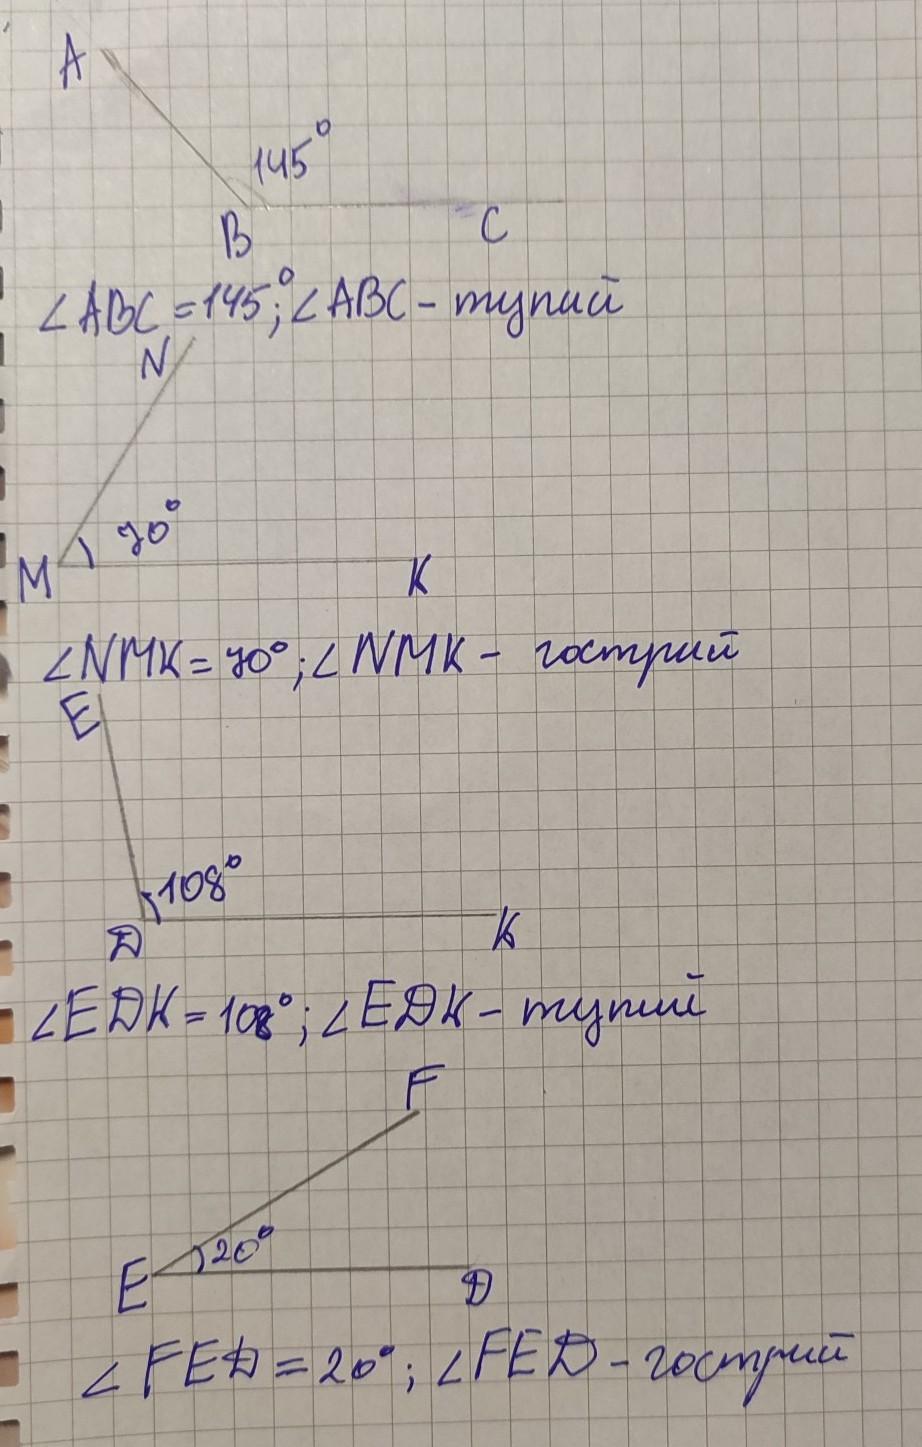 A
145°
B
C
∠ABC = 145°; ∠ABC - тупий
N
70°
M
K
∠NMK = 70°; ∠NMK - гострий
E
108°
D
K
∠EDK = 108°; ∠EDK - тупий
F
20°
E
D
∠FED = 20°; ∠FED - гострий